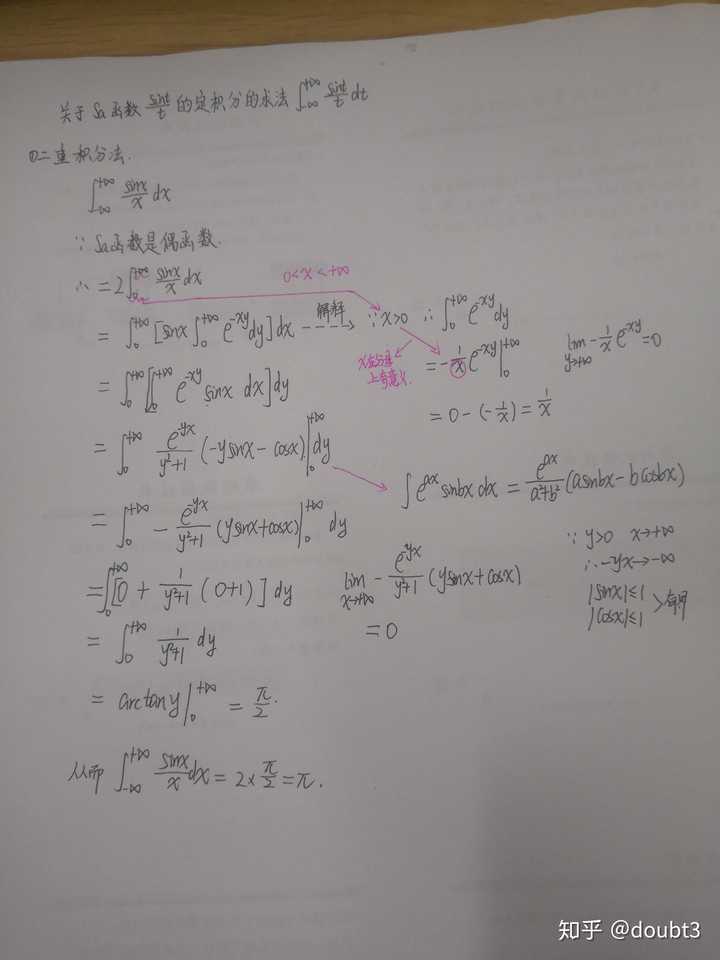 关于Sa函数 sint/t 的定积分的求法 ∫_{-∞}^{+∞} sint/t dt
①二重积分法.
∫_{-∞}^{+∞} sinx/x dx
∵ Sa函数是偶函数.
∴ = 2∫_0^{+∞} sinx/x dx
0<x<+∞
= ∫_0^{+∞} [sinx ∫_0^{+∞} e^{-xy} dy] dx
解释
∵ x>0 ∴ ∫_0^{+∞} e^{-xy} dy
= ∫_0^{+∞} [∫_0^{+∞} e^{-xy} sinx dx] dy
x在分母上有意义.
= -1/x e^{-xy} |_0^{+∞}
lim_{y→+∞} -1/x e^{-xy} = 0
= 0-(-1/x) = 1/x
= ∫_0^{+∞} e^{-yx}/(y²+1) (-ysinx-cosx) |_0^{+∞} dy
∫ e^{ax} sinbx dx = e^{ax}/(a²+b²) (asinbx-bcosbx)
= ∫_0^{+∞} - e^{-yx}/(y²+1) (ysinx+cosx) |_0^{+∞} dy
= ∫_0^{+∞} [0 + 1/(y²+1) (0+1)] dy
lim_{x→+∞} - e^{-yx}/(y²+1) (ysinx+cosx)
= 0
∵ y>0 x→+∞
∴ -yx→-∞
|sinx|≤1
|cosx|≤1
>有界
= ∫_0^{+∞} 1/(y²+1) dy
= arctany |_0^{+∞} = π/2.
从而 ∫_{-∞}^{+∞} sinx/x dx = 2×π/2 = π.
知乎 @doubt3